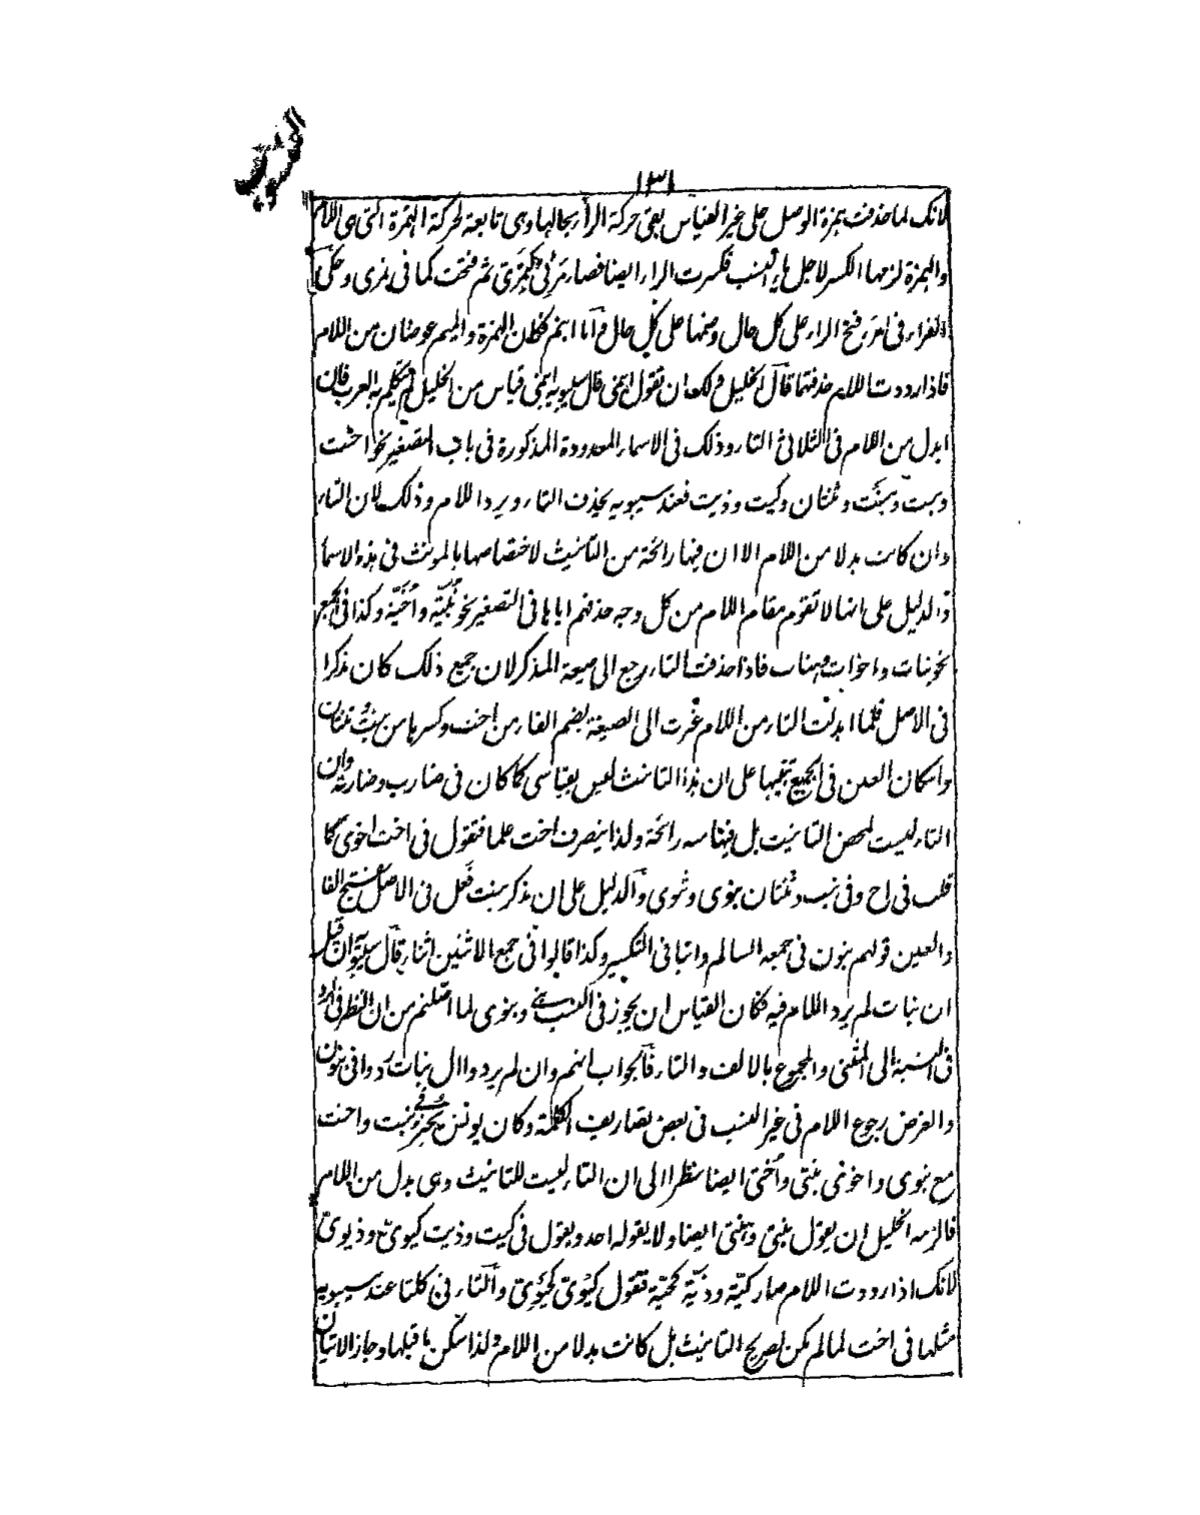 ١٣١
لانك لما حذفت همزة الوصل على غير القياس بقى حركة الراء بحالها وهى تابعة لحركة الهمزة التى هى اللام
والهمزة لزمها الكسر لاجل ياء النسب فكسرت الراء ايضا فصار مرئى ثم فتحت كما فى نمرى وحكى
الفراء فى امرء فتح الراء على كل حال وضمها على كل حال واما ابنم فكان الهمزة والميم عوضان من اللام
فاذا رددت اللام حذفتها قال الخليل ولك ان تقول ابنمى قال سيبويه ابنمى قياس من الخليل لم تتكلم به العرب فان
ابدل من اللام فى الثلاثى التاء وذلك فى الاسماء المعدودة المذكورة فى باب التصغير نحو اخت
وبنت وهنت وثنتان وكيت وذيت فعند سيبويه يحذف التاء ويرد اللام وذلك لان التاء
وان كانت بدلا من اللام الا ان فيها رائحة من التانيث لاختصاصها بالمونث فى هذه الاسماء
والدليل على انها لا تقوم مقام اللام من كل وجه حذفهم اياها فى التصغير نحو بنيّة واخيّة وكذا فى الجمع
نحو بنات واخوات وهنات فاذا حذفت التاء رجع الى صيغة المذكر لان جميع ذلك كان مذكرا
فى الاصل فلما ابدلت التاء من اللام غيرت الى الصيغة بضم الفاء من اخت وكسرها من بنت وثنتان
واسكان العين فى الجميع تنبيها على ان هذا التانيث ليس بقياسى كما كان فى ضارب وضاربة وان
التاء ليست لمحض التانيث بل فيها منه رائحة ولذا ينصرف اخت علما فتقول فى اخت اخوى كما
قلت فى اخ وفى بنت وثنتان بنوى وثنوى والدليل على ان مذكر بنت فعل فى الاصل بفتح الفا
والعين قولهم بنون فى جمعه السالم وابنا فى التكسير وكذا قالوا فى جمع الاثنين اثناء قال سيبويه ان قيل
ان بنات لم يرد اللام فيه فكان القياس ان يجوز فى النسب بنى وبنوى لما اصلتم من ان النظر فى الرد
فى النسبة الى المثنى والمجموع بالالف والتاء فالجواب انهم وان لم يردوا فى بنات ردوا فى بنون
والغرض رجوع اللام فى غير النسب فى بعض تصاريف الكلمة وكان يونس يجيز فى بنت واخت
مع بنوى واخوى بنتى واختى ايضا نظرا الى ان التاء ليست للتانيث وهى بدل من اللام
فالزمه الخليل ان يقول منتى وهنتى ايضا ولا يقوله احد ويقول فى كيت وذيت كيوى وذيوى
لانك اذا رددت اللام صار كيّة وذيّة كحيّة فتقول كيوى كحيوى والتاء فى كلتا عند سيبويه
مثلها فى اخت لما لم تكن لصريح التانيث بل كانت بدلا من اللام ولذا سكن ما قبلها وجاز الاتيان